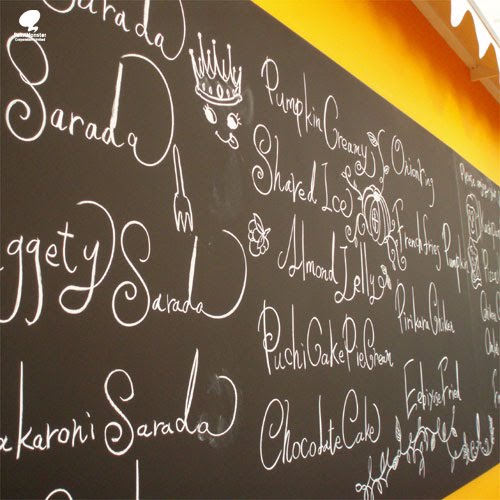 Sarada
Sarada
ggety Sarada
akaroni Sarada
Pumpkin Creamy
Shaved Ice
Almond Jelly
Puchi Cake Pie Cream
Chocolate Cake
Onion ring
French fries Pumpkin
Pirikara Chiken
Fried